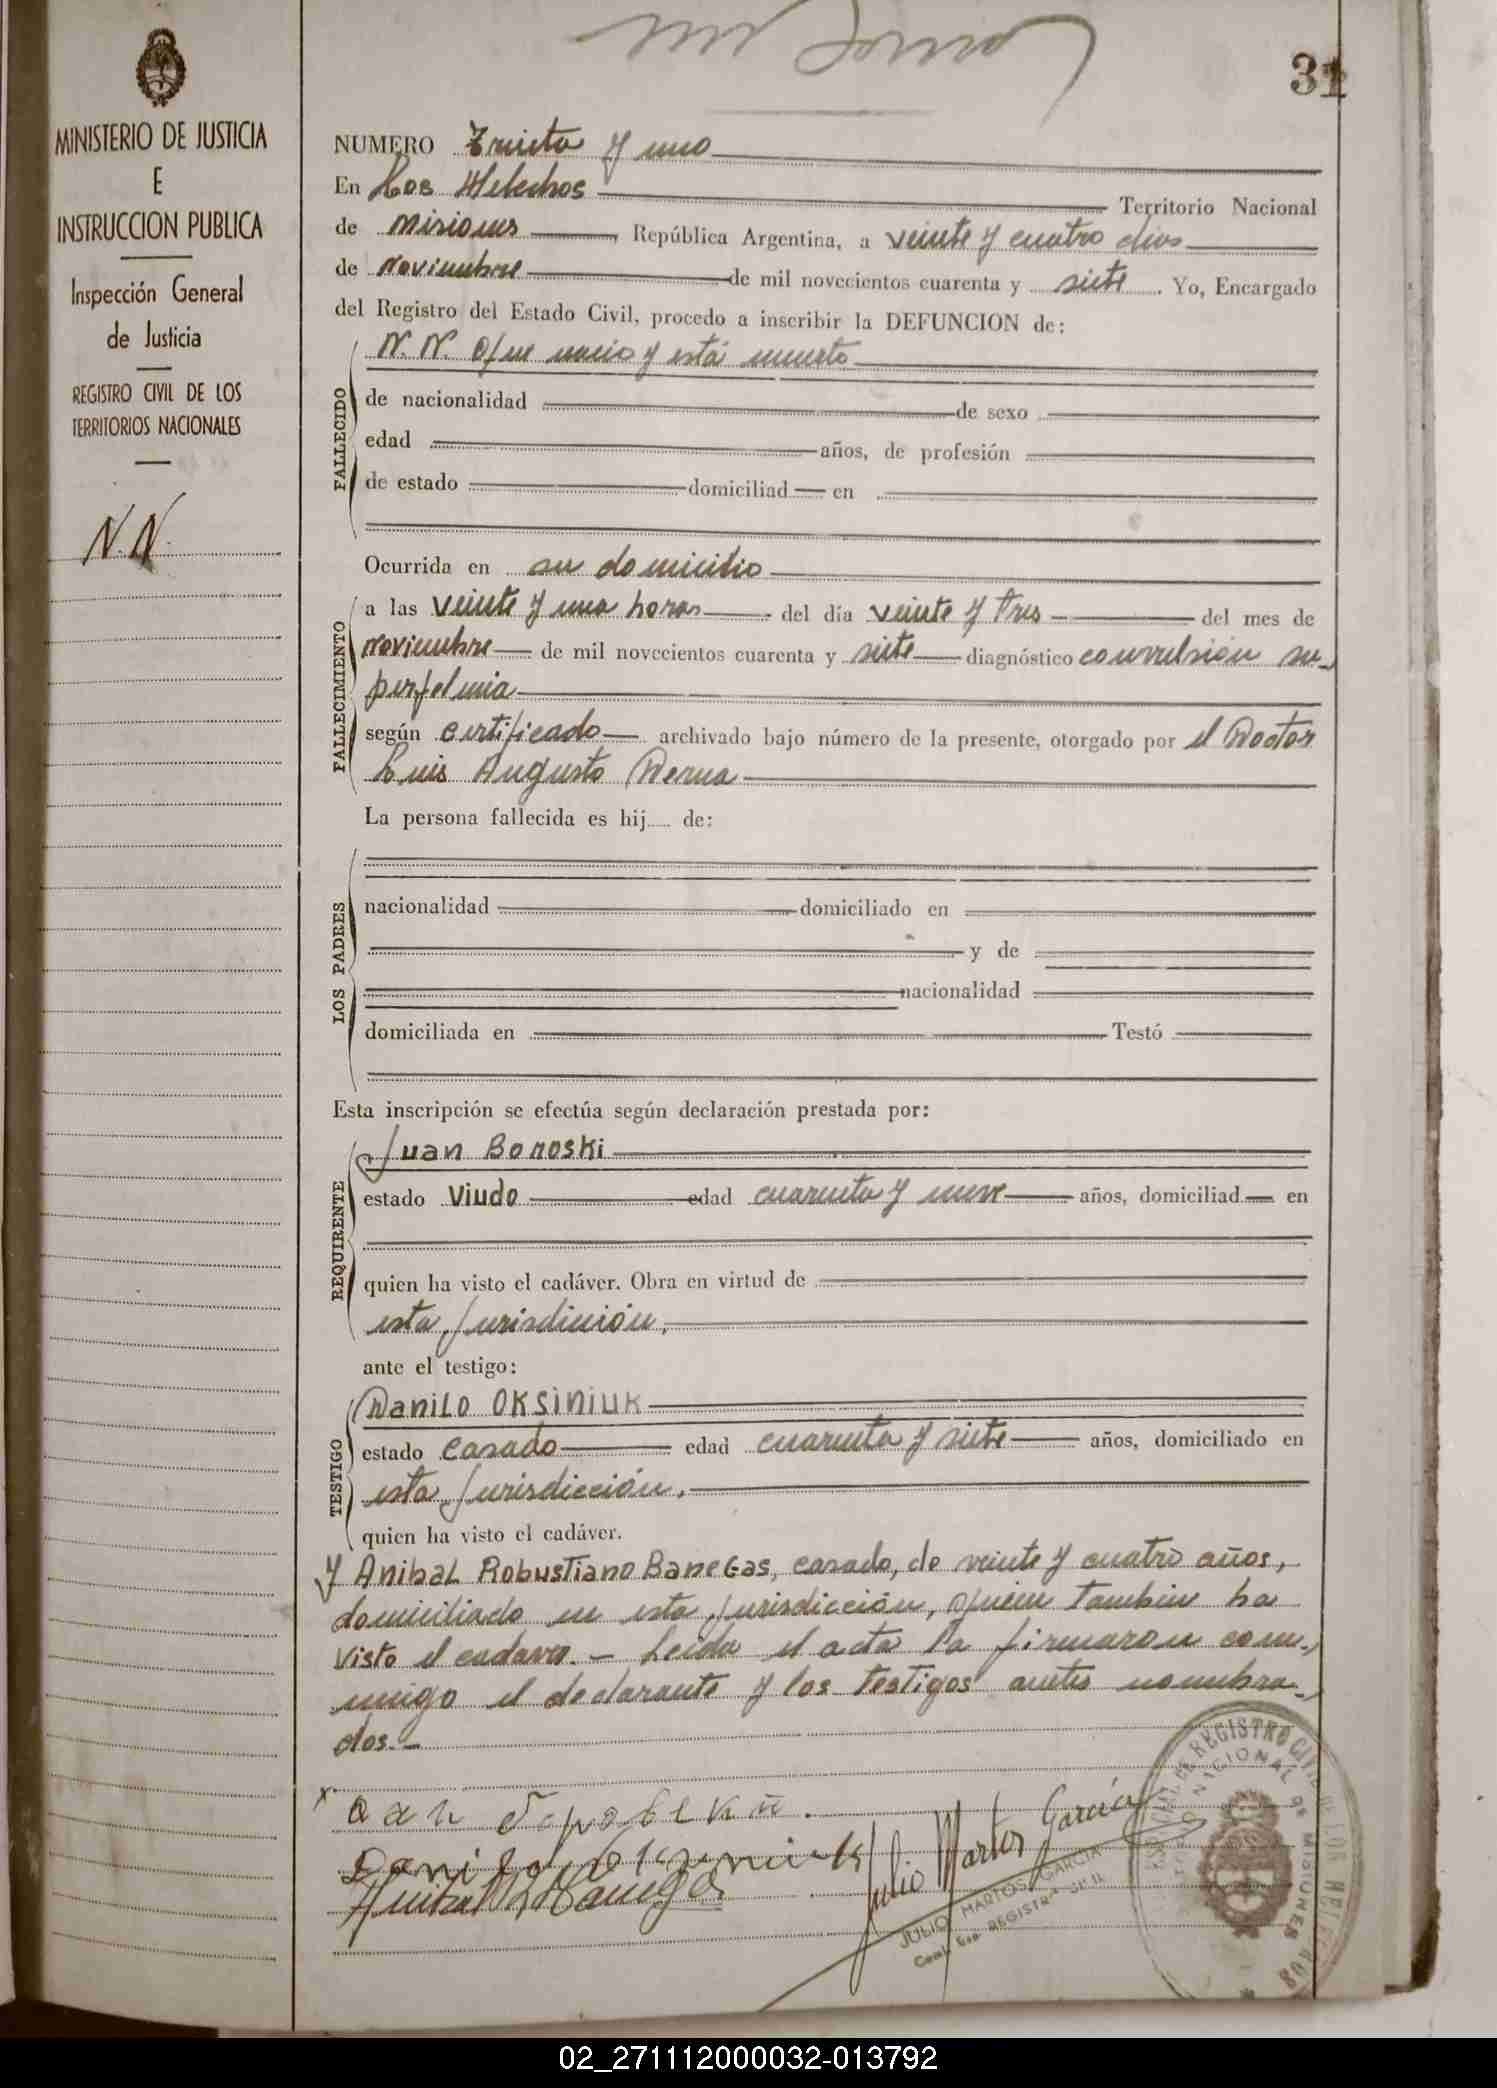 31
MINISTERIO DE JUSTICIA
E
INSTRUCCION PUBLICA
Inspección General
de Justicia
REGISTRO CIVIL DE LOS
TERRITORIOS NACIONALES
N.N.
NUMERO Treinta y uno
En Los Helechos Territorio Nacional
de Misiones República Argentina, a veinte y cuatro dias
de noviembre de mil novecientos cuarenta y siete. Yo, Encargado
del Registro del Estado Civil, procedo a inscribir la DEFUNCION de:
FALLECIDO
N. N. que nació y está muerto
de nacionalidad de sexo
edad años, de profesión
de estado domiciliad en
Ocurrida en su domicilio
FALLECIMIENTO
a las veinte y una horas del día veinte y tres del mes de
noviembre de mil novecientos cuarenta y siete diagnóstico convulsión
según certificado archivado bajo número de la presente, otorgado por el Doctor
Luis Augusto Derna
La persona fallecida es hij.... de:
LOS PADRES
nacionalidad domiciliado en
y de
nacionalidad
domiciliada en Testó
Esta inscripción se efectúa según declaración prestada por:
REQUIRENTE
Juan Boroski
estado Viudo edad cuarenta y nueve años, domiciliad en
quien ha visto el cadáver. Obra en virtud de
esta jurisdición.
ante el testigo:
TESTIGO
Danilo Oksiniuk
estado casado edad cuarenta y siete años, domiciliado en
esta jurisdicción.
quien ha visto el cadáver.
y Anibal Robustiano Banegas, casado, de veinte y cuatro años,
domiciliado en esta jurisdicción, quien tambien ha
visto el cadaver. - Leida el acta la firmaron con-
migo el declarante y los testigos antes nombra-
dos.-
Julio Martos García
JULIO MARTOS GARCIA
REGISTRO CIVIL
02_271112000032-013792